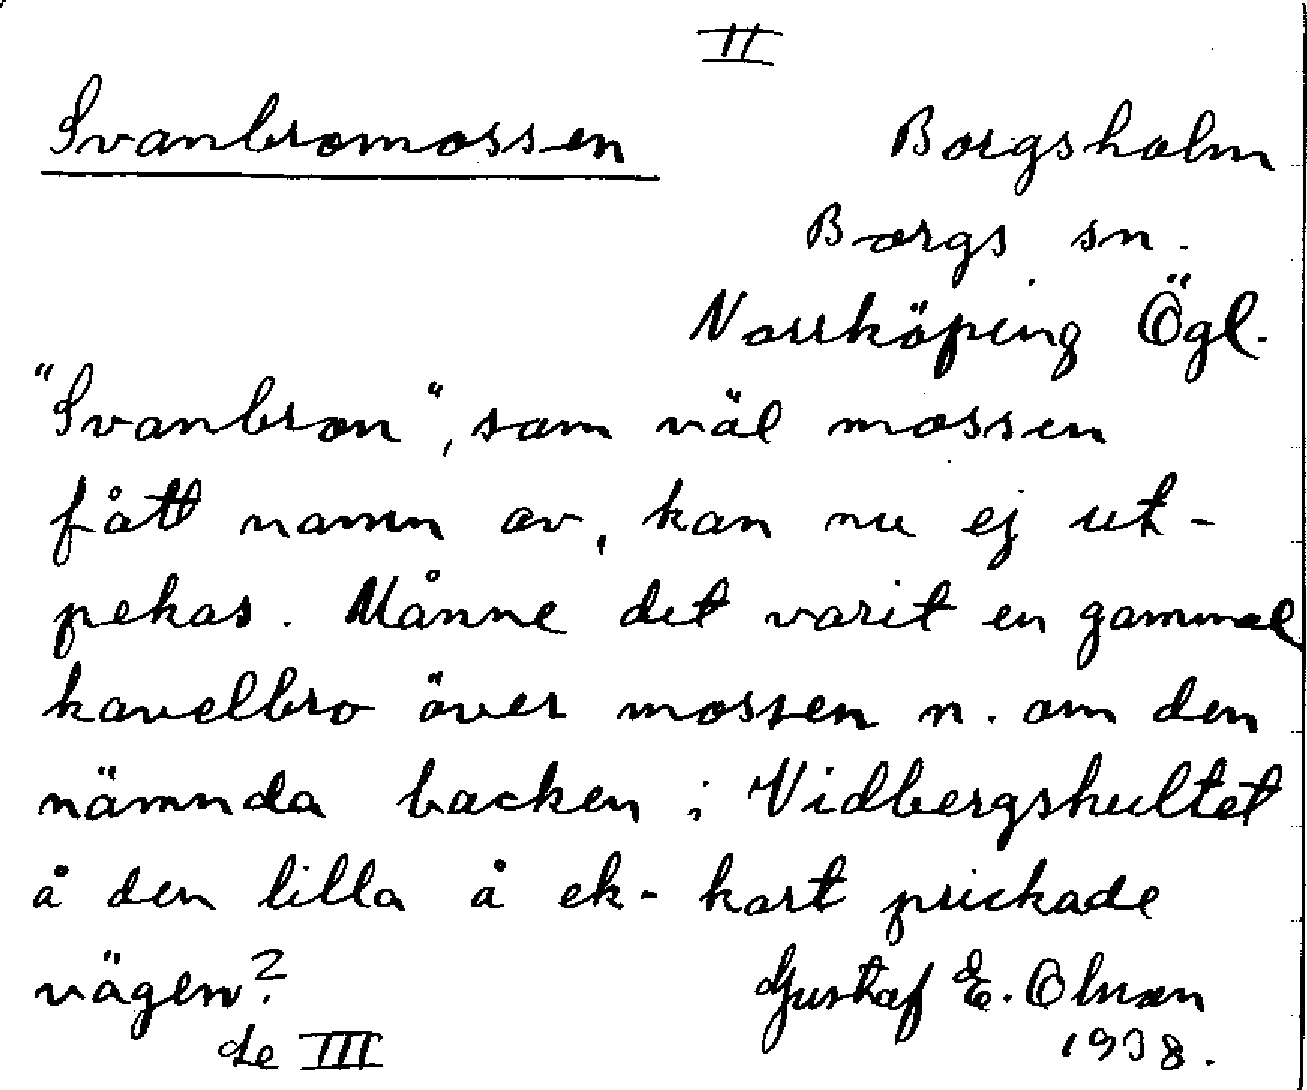 II
Svanbromossen
Borgsholm
Borgs sn.
Norrköping Ögl.
"Svanbron", som väl mossen
fått namn av, kan nu ej ut-
pekas. Månne det varit en gammal
kavelbro över mossen n. om den
nämnda backen i Vidbergshultet
å den lilla å ek-kart prickade
vägen?
Gustaf E. Olson
1938.
de III